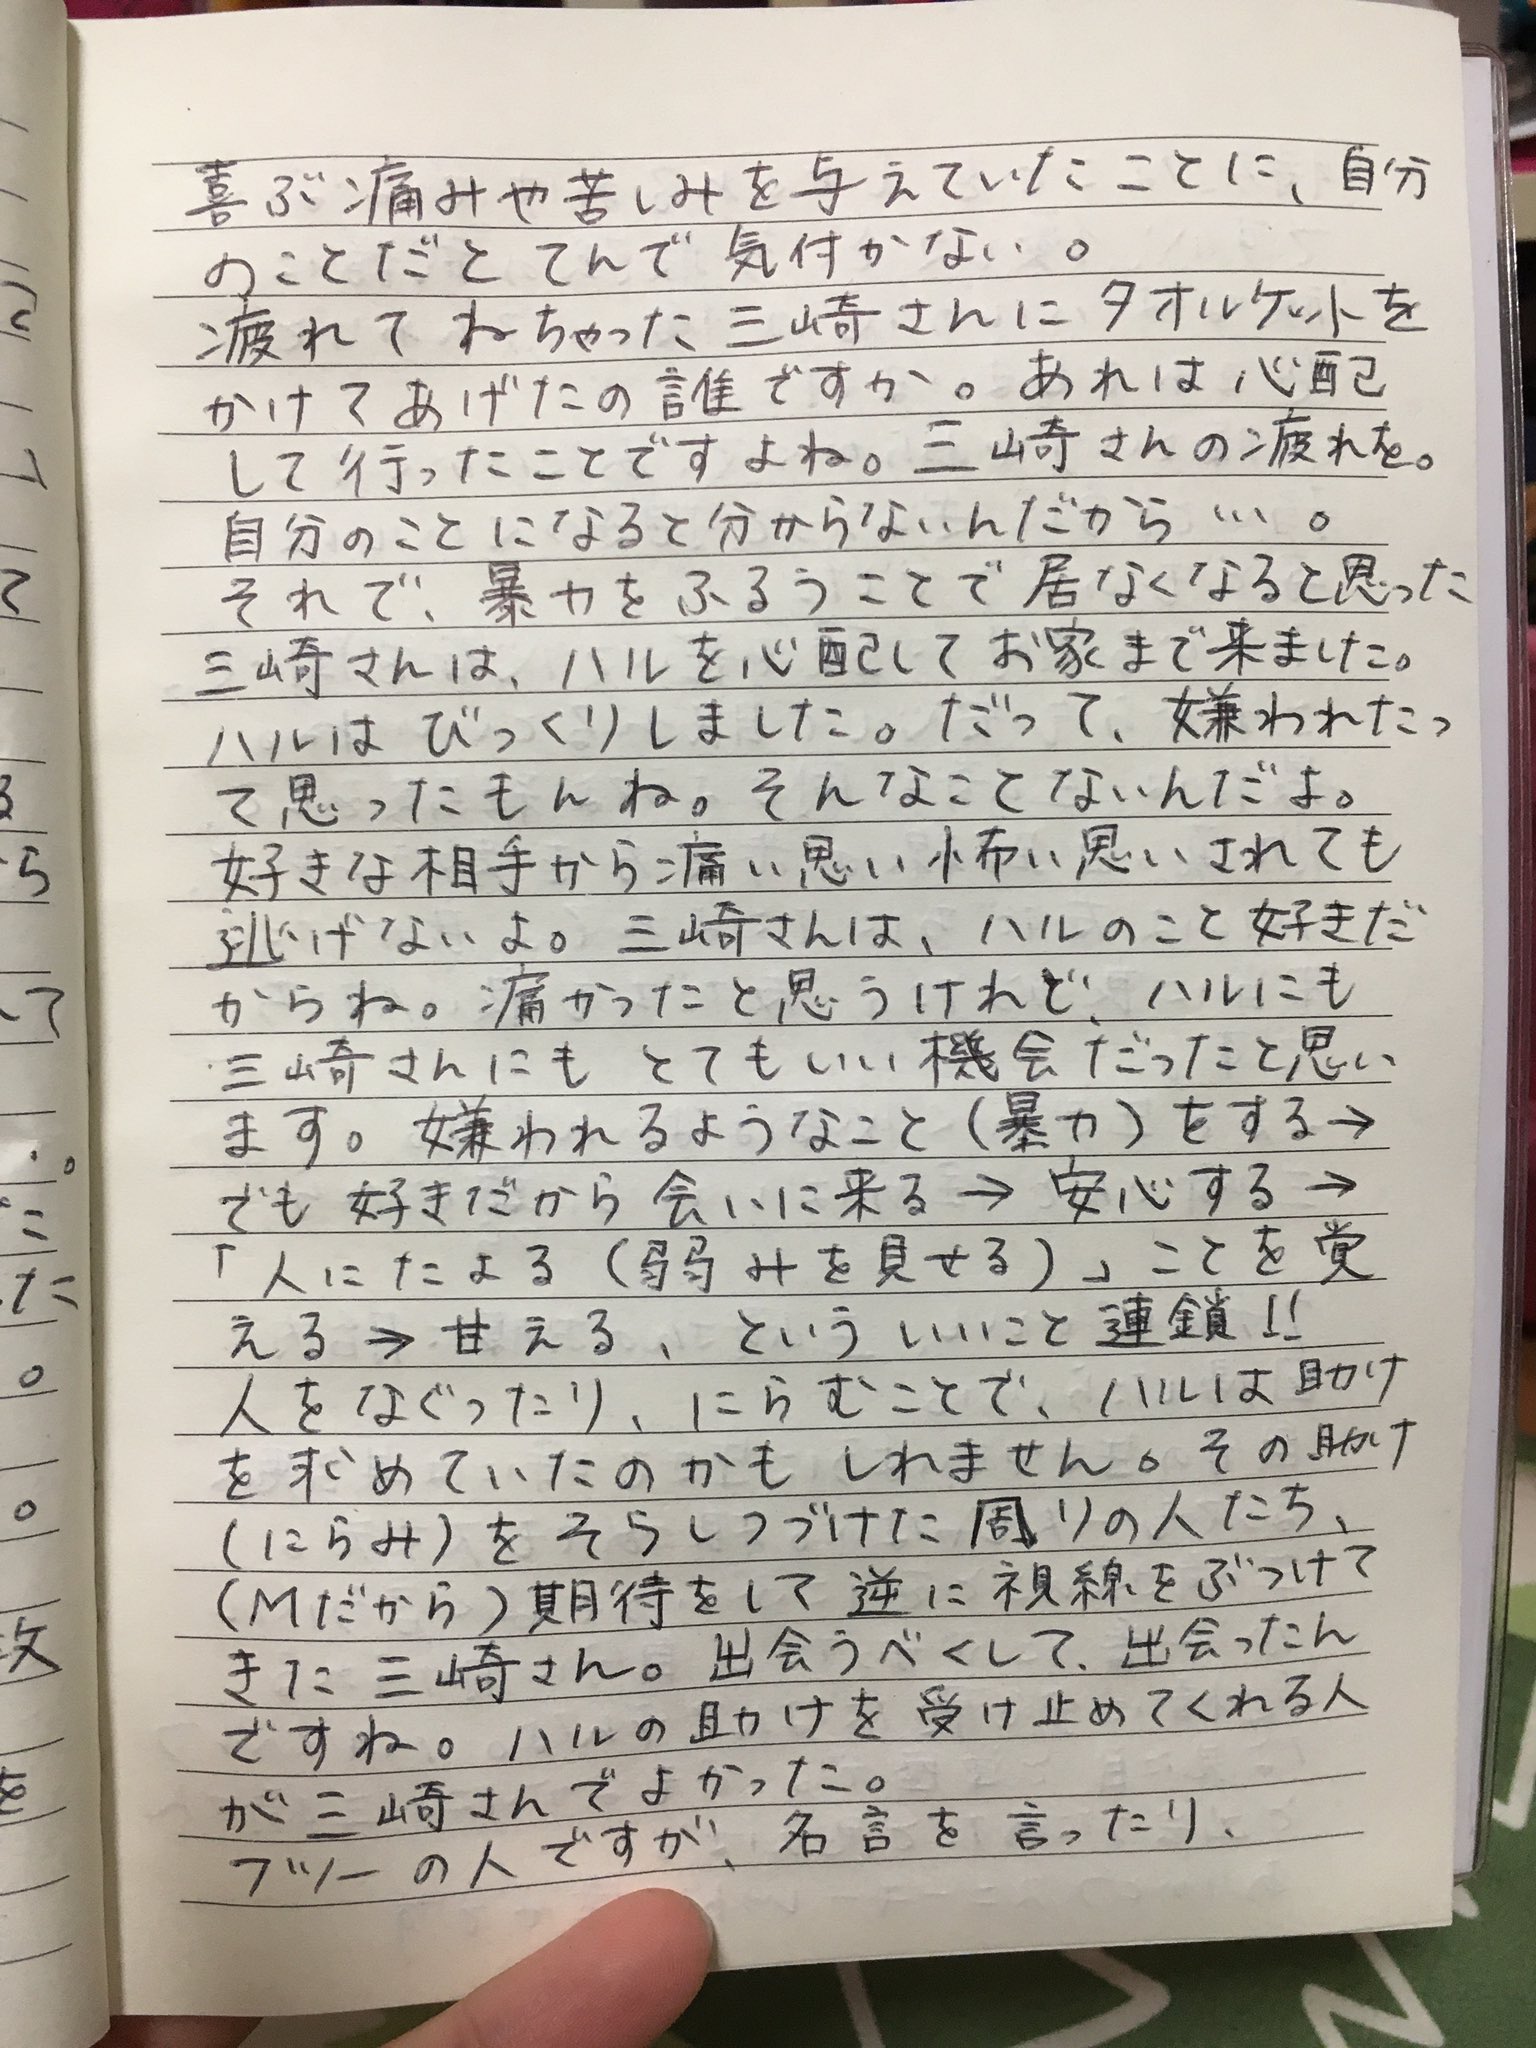 喜ぶ痛みや苦しみを与えていたことに、自分
のことだと てんで 気付かない。
疲れて ねちゃった 三崎さんに タオルケットを
かけてあげたの誰ですか。あれは心配
して行ったことですよね。三崎さんの疲れを。
自分のことになると分からないんだから…。
それで、暴力をふるうことで居なくなると思った
三崎さんは、ハルを心配してお家まで来ました。
ハルはびっくりしました。だって、嫌われたっ
て思ったもんね。そんなことないんだよ。
好きな相手から痛い思い怖い思いされても
逃げないよ。三崎さんは、ハルのこと好きだ
からね。痛かったと思うけれど、ハルにも
三崎さんにも とてもいい機会だったと思い
ます。嫌われるようなこと(暴力)をする→
でも好きだから会いに来る→安心する→
「人にたよる(弱みを見せる)」ことを覚
える→甘える、という いいこと連鎖!!
人をなぐったり、にらむことで、ハルは助け
を求めていたのかも しれません。その助け
(にらみ)をそらしつづけた周りの人たち、
(Mだから)期待をして逆に視線をぶつけて
きた三崎さん。出会うべくして、出会ったん
ですね。ハルの助けを受け止めてくれる人
が三崎さんでよかった。
フツーの人ですが、名言を言ったり、